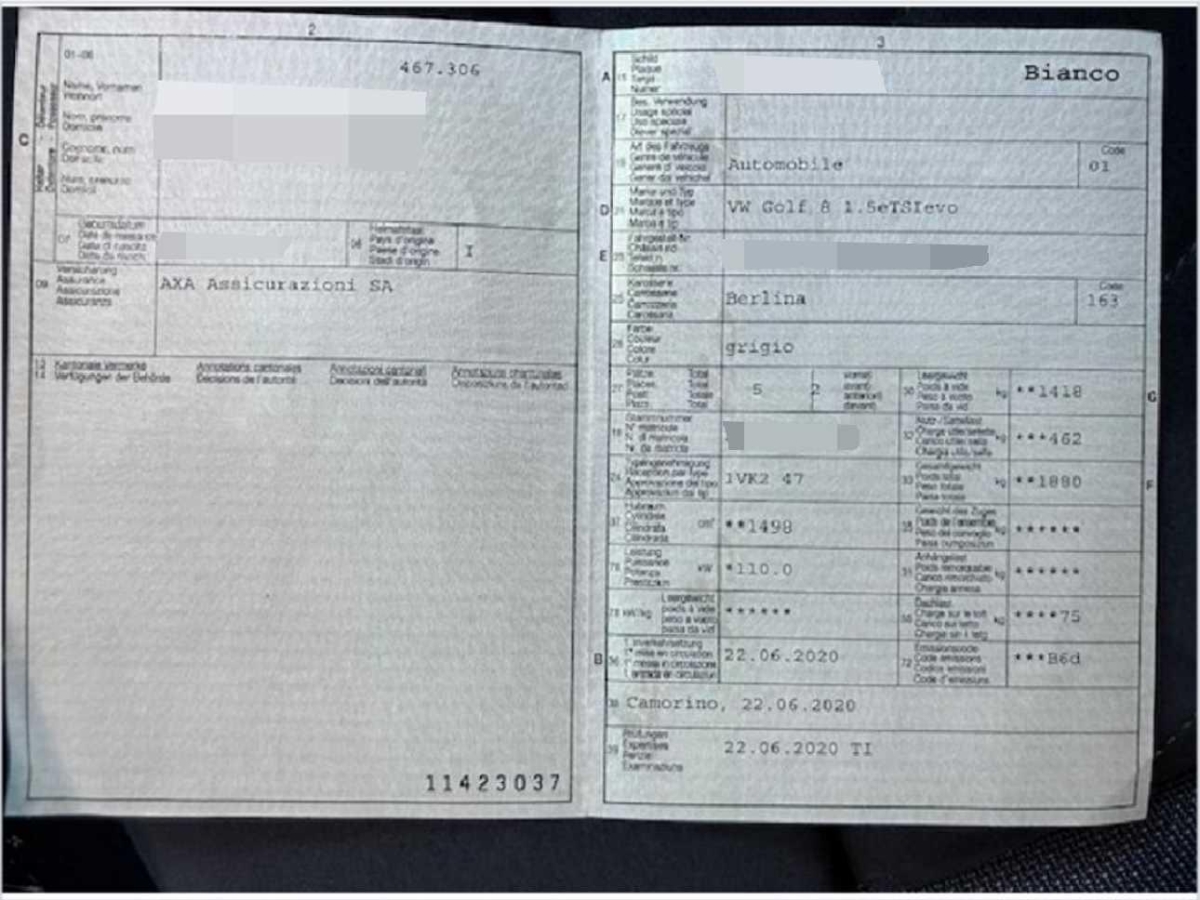 2
01-06
467.306
C
Name, Vornamen
Wohnort
Nom, prénoms
Domicile
Cognome, nomi
Domicilio
Num, prenums
Domicil
07
Geburtsdatum
Date de naissance
Data di nascita
Data da nasch.
Heimatstaat
Pays d'origine
Paese d'origine
Stadi d'origin
I
09
Versicherung
Assurance
Assicurazione
Assicuranza
AXA Assicurazioni SA
13
14
Kantonale Vermerke
Verfügungen der Behörde
Annotations cantonales
Décisions de l'autorité
Annotazioni cantonali
Decisioni dell'autorità
Annotaziuns chantunalas
Disposiziuns da l'autoritad
11423037
3
A 15
Schild
Plaque
Targa
Numer
Bianco
17
Bes. Verwendung
Usage spécial
Uso speciale
Diever spezial
Art des Fahrzeugs
Genre de véhicule
Genere di veicolo
Gener dal vehichel
Automobile
Code
01
D 21
Marke und Typ
Marque et type
Marca e tipo
Marca e tip
VW Golf 8 1.5eTSIevo
E 23
Fahrgestell-Nr.
Châssis no
Telaio n.
Schassis nr.
25
Karosserie
Carrosserie
Carrozzeria
Carossaria
Berlina
Code
163
26
Farbe
Couleur
Colore
Colur
grigio
27
Plätze Total
Places Total
Posti Totale
Plazs Total
5
2
vorne
avant
anteriori
davant
30
Leergewicht
Poids à vide
Peso a vuoto
Paisa da vid
kg
**1418
G
18
Stammnummer
N° matricule
N. di matricola
Nr. da matricla
32
Nutz-/Sattellast
Charge utile/sellette
Carico utile/sella
Chargia utila/sella
kg
***462
24
Typengenehmigung
Réception par type
Approvazione del tipo
Approvaziun dal tip
1VK2 47
33
Gesamtgewicht
Poids total
Peso totale
Paisa totala
kg
**1880
F
37
Hubraum
Cylindrée
Cilindrata
Cilindrada
cm³
**1498
35
Gewicht des Zuges
Poids de l'ensemble
Peso del convoglio
Paisa cumposiziun
kg
******
76
Leistung
Puissance
Potenza
Prestaziun
kW
*110.0
31
Anhängelast
Poids remorquable
Carico rimorchiato
Chargia annexa
kg
******
78 kW/kg
Leergewicht
poids à vide
peso a vuoto
paisa da vid
******
55
Dachlast
Charge sur le toit
Carico sul tetto
Chargia sin il tetg
kg
****75
B 36
1. Inverkehrsetzung
1re mise en circulation
1a messa in circolazione
1. entrada en circulaziun
22.06.2020
72
Emissionscode
Code émissions
Codice emissioni
Code d'emissiuns
***B6d
38
Camorino, 22.06.2020
39
Prüfungen
Expertises
Perizie
Examinaziuns
22.06.2020 TI